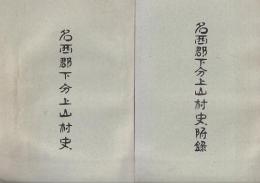 名西郡下分上山村史
名西郡下分上山村史附錄